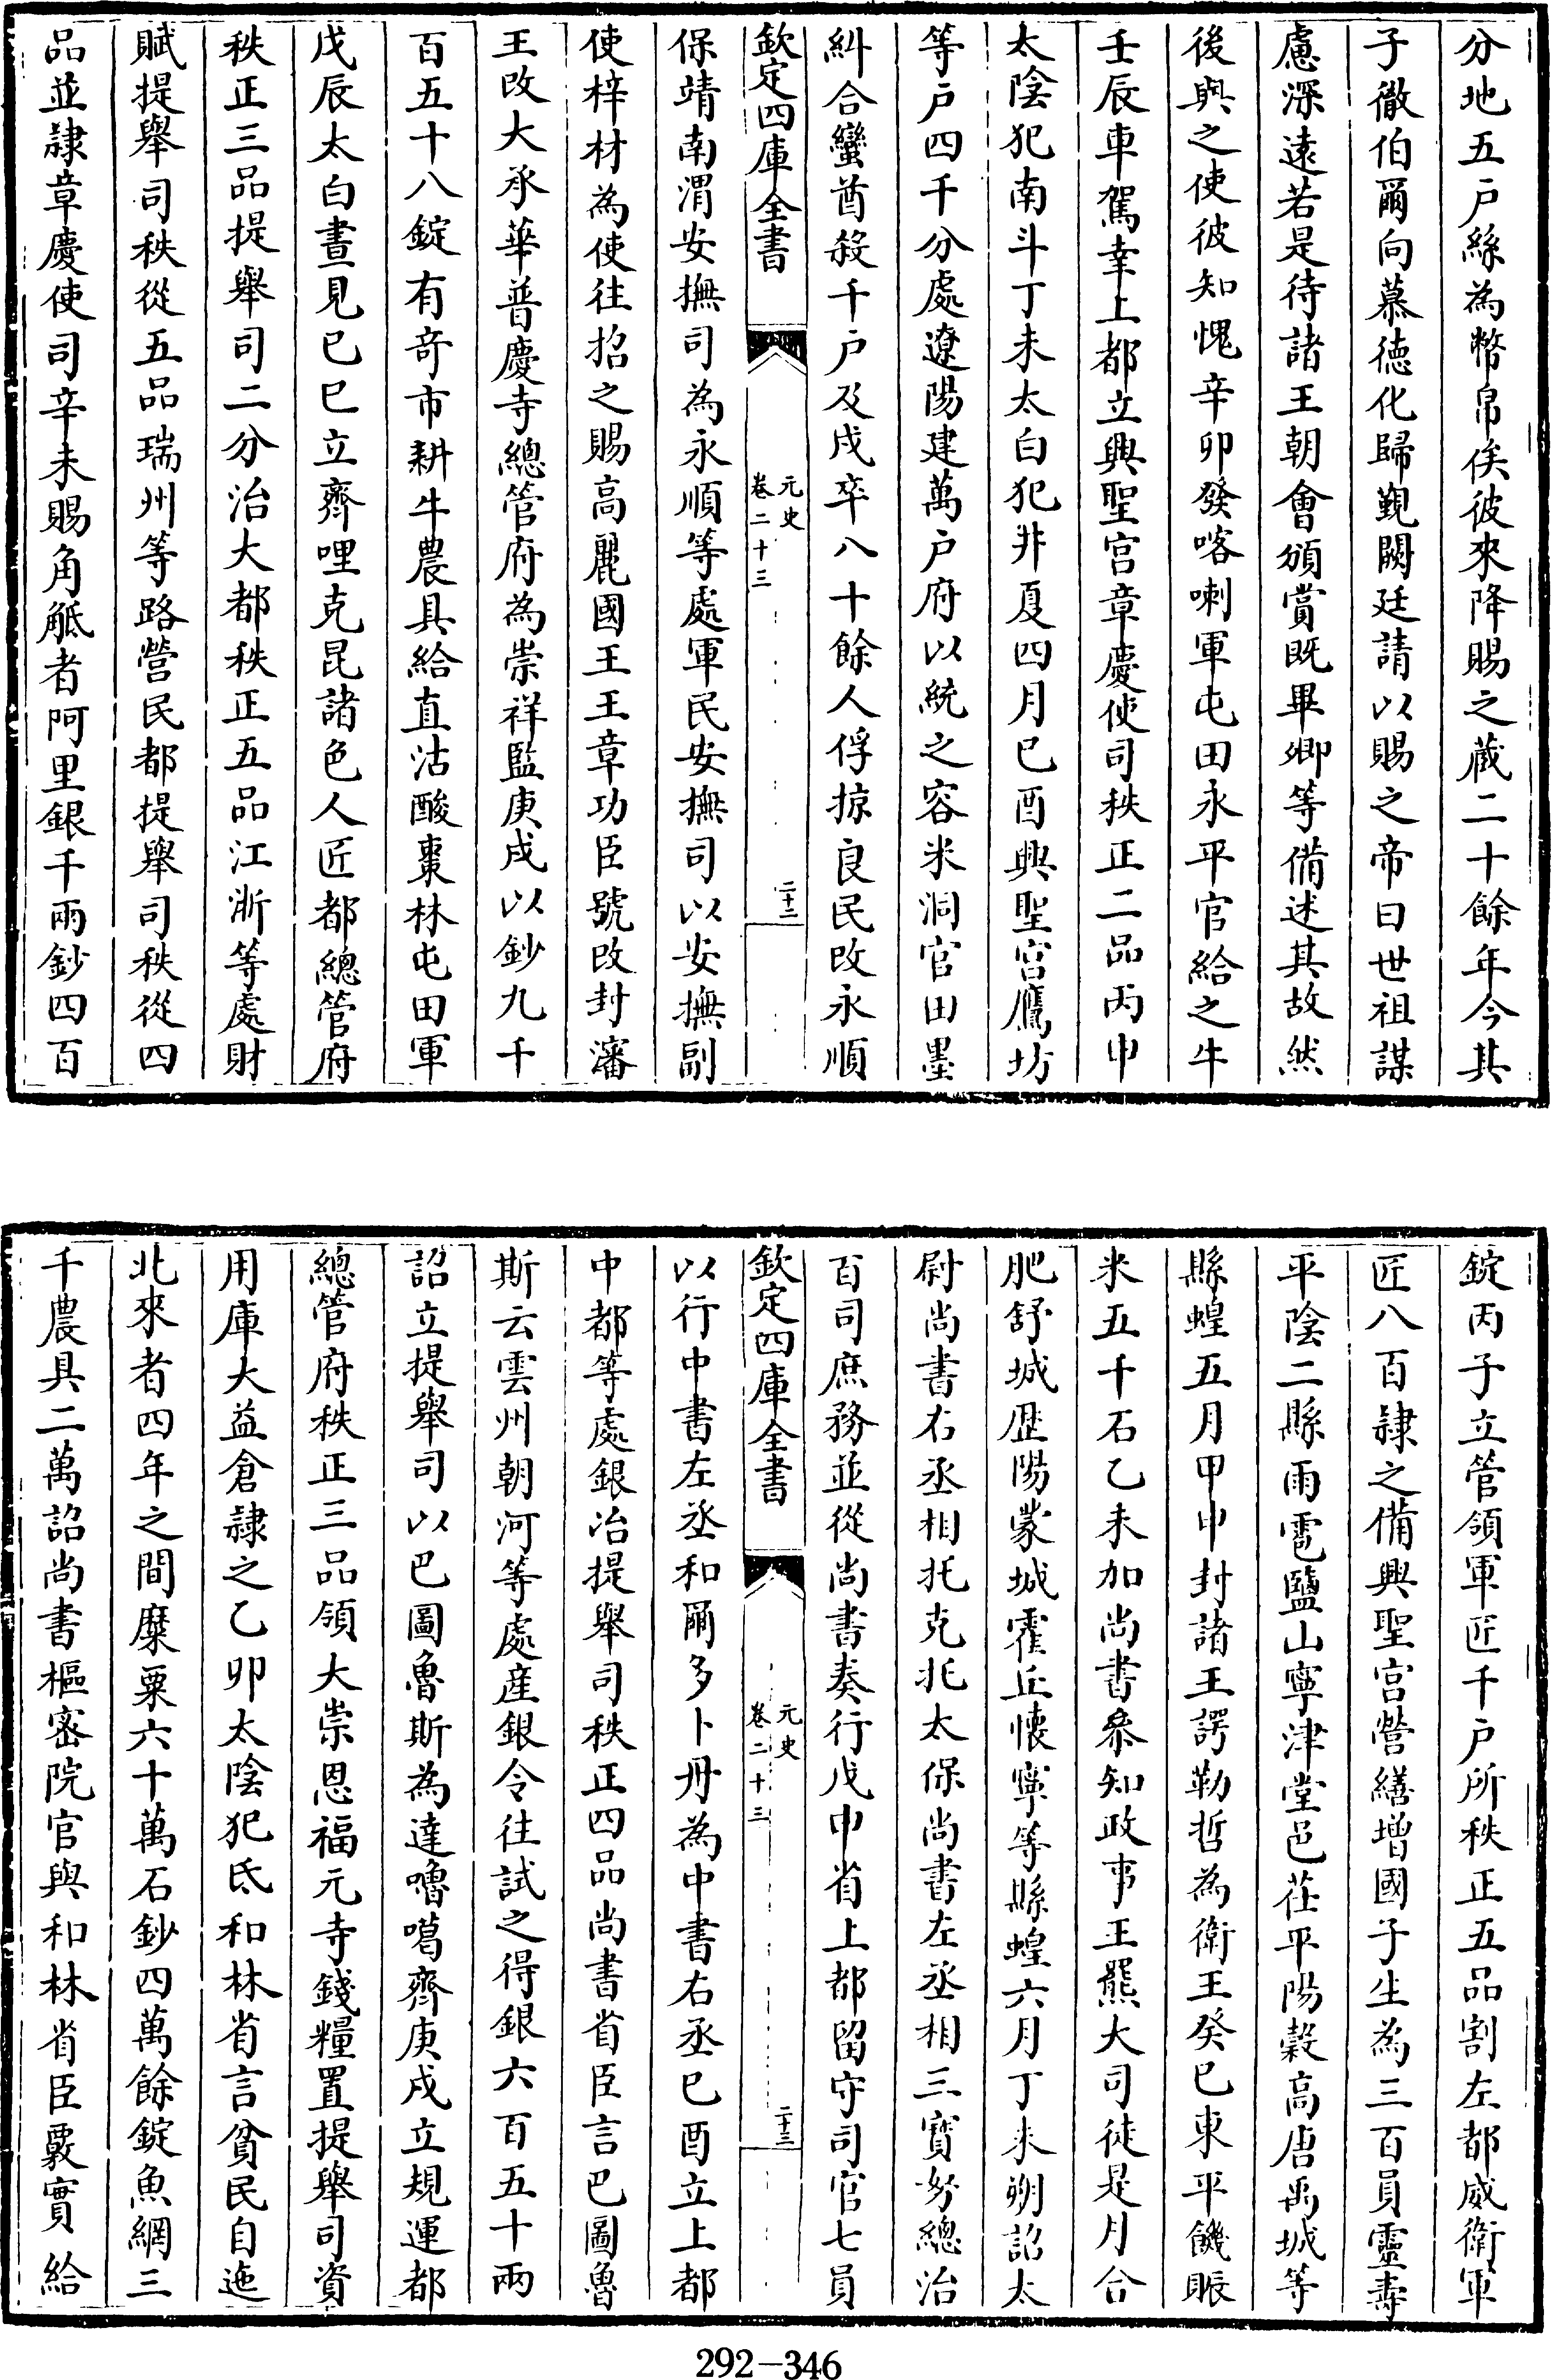 分地五戸絲為幣帛俟彼來降賜之蔵二十餘年今其
子徹伯爾向慕徳化歸覲闕廷請以賜之帝曰世祖謀
慮深逺若是待諸王朝會頒賞既畢卿等備述其故然
後與之使彼知愧辛卯發喀喇軍屯田永平官給之牛
壬辰車駕幸上都立興聖宫章慶使司秩正二品丙申
太陰犯南斗丁未太白犯井夏四月己酉興聖宫鷹坊
等户四千分處遼陽建萬户府以統之容米洞官田墨
糾合蠻酋殺千户及戍卒八十餘人俘掠良民改永順
欽定四庫全書
元史
卷二十三
二十三
保靖南渭安撫司為永順等處軍民安撫司以安撫副
使梓材為使往招之賜高麗國王王章功臣號改封瀋
王改大承華普慶寺總管府為崇祥監庚戌以鈔九千
百五十八錠有竒市耕牛農具給直沽酸棗林屯田軍
戊辰太白晝見己巳立齊哩克昆諸色人匠都總管府
秩正三品提舉司二分治大都秩正五品江浙等處財
賦提舉司秩從五品瑞州等路營民都提舉司秩從四
品並隷章慶使司辛未賜角觝者阿里銀千兩鈔四百
錠丙子立管領軍匠千户所秩正五品割左都威衛軍
匠八百隷之備興聖宫營繕增國子生為三百員靈壽
平陰二縣雨雹鹽山寧津堂邑茌平陽穀高唐禹城等
縣蝗五月甲申封諸王諤勒哲為衛王癸巳東平饑賑
米五千石乙未加尚書參知政事王羆大司徒是月合
肥舒城歴陽蒙城霍丘懷寧等縣蝗六月丁未朔詔太
尉尚書右丞相托克托太保尚書左丞相三寳努總治
百司庶務並從尚書奏行戊申省上都留守司官七員
欽定四庫全書
元史
卷二十三
二十三
以行中書左丞和爾多卜丹為中書右丞己酉立上都
中都等處銀冶提舉司秩正四品尚書省臣言巴圖魯
斯云雲州朝河等處産銀令往試之得銀六百五十兩
詔立提舉司以巴圖魯斯為達嚕噶齊庚戌立規運都
總管府秩正三品領大崇恩福元寺錢糧置提舉司資
用庫大益倉隷之乙卯太陰犯氐和林省言貧民自迤
北來者四年之間糜粟六十萬石鈔四萬餘錠魚網三
千農具二萬詔尚書樞密院官與和林省臣覈實給
292-346